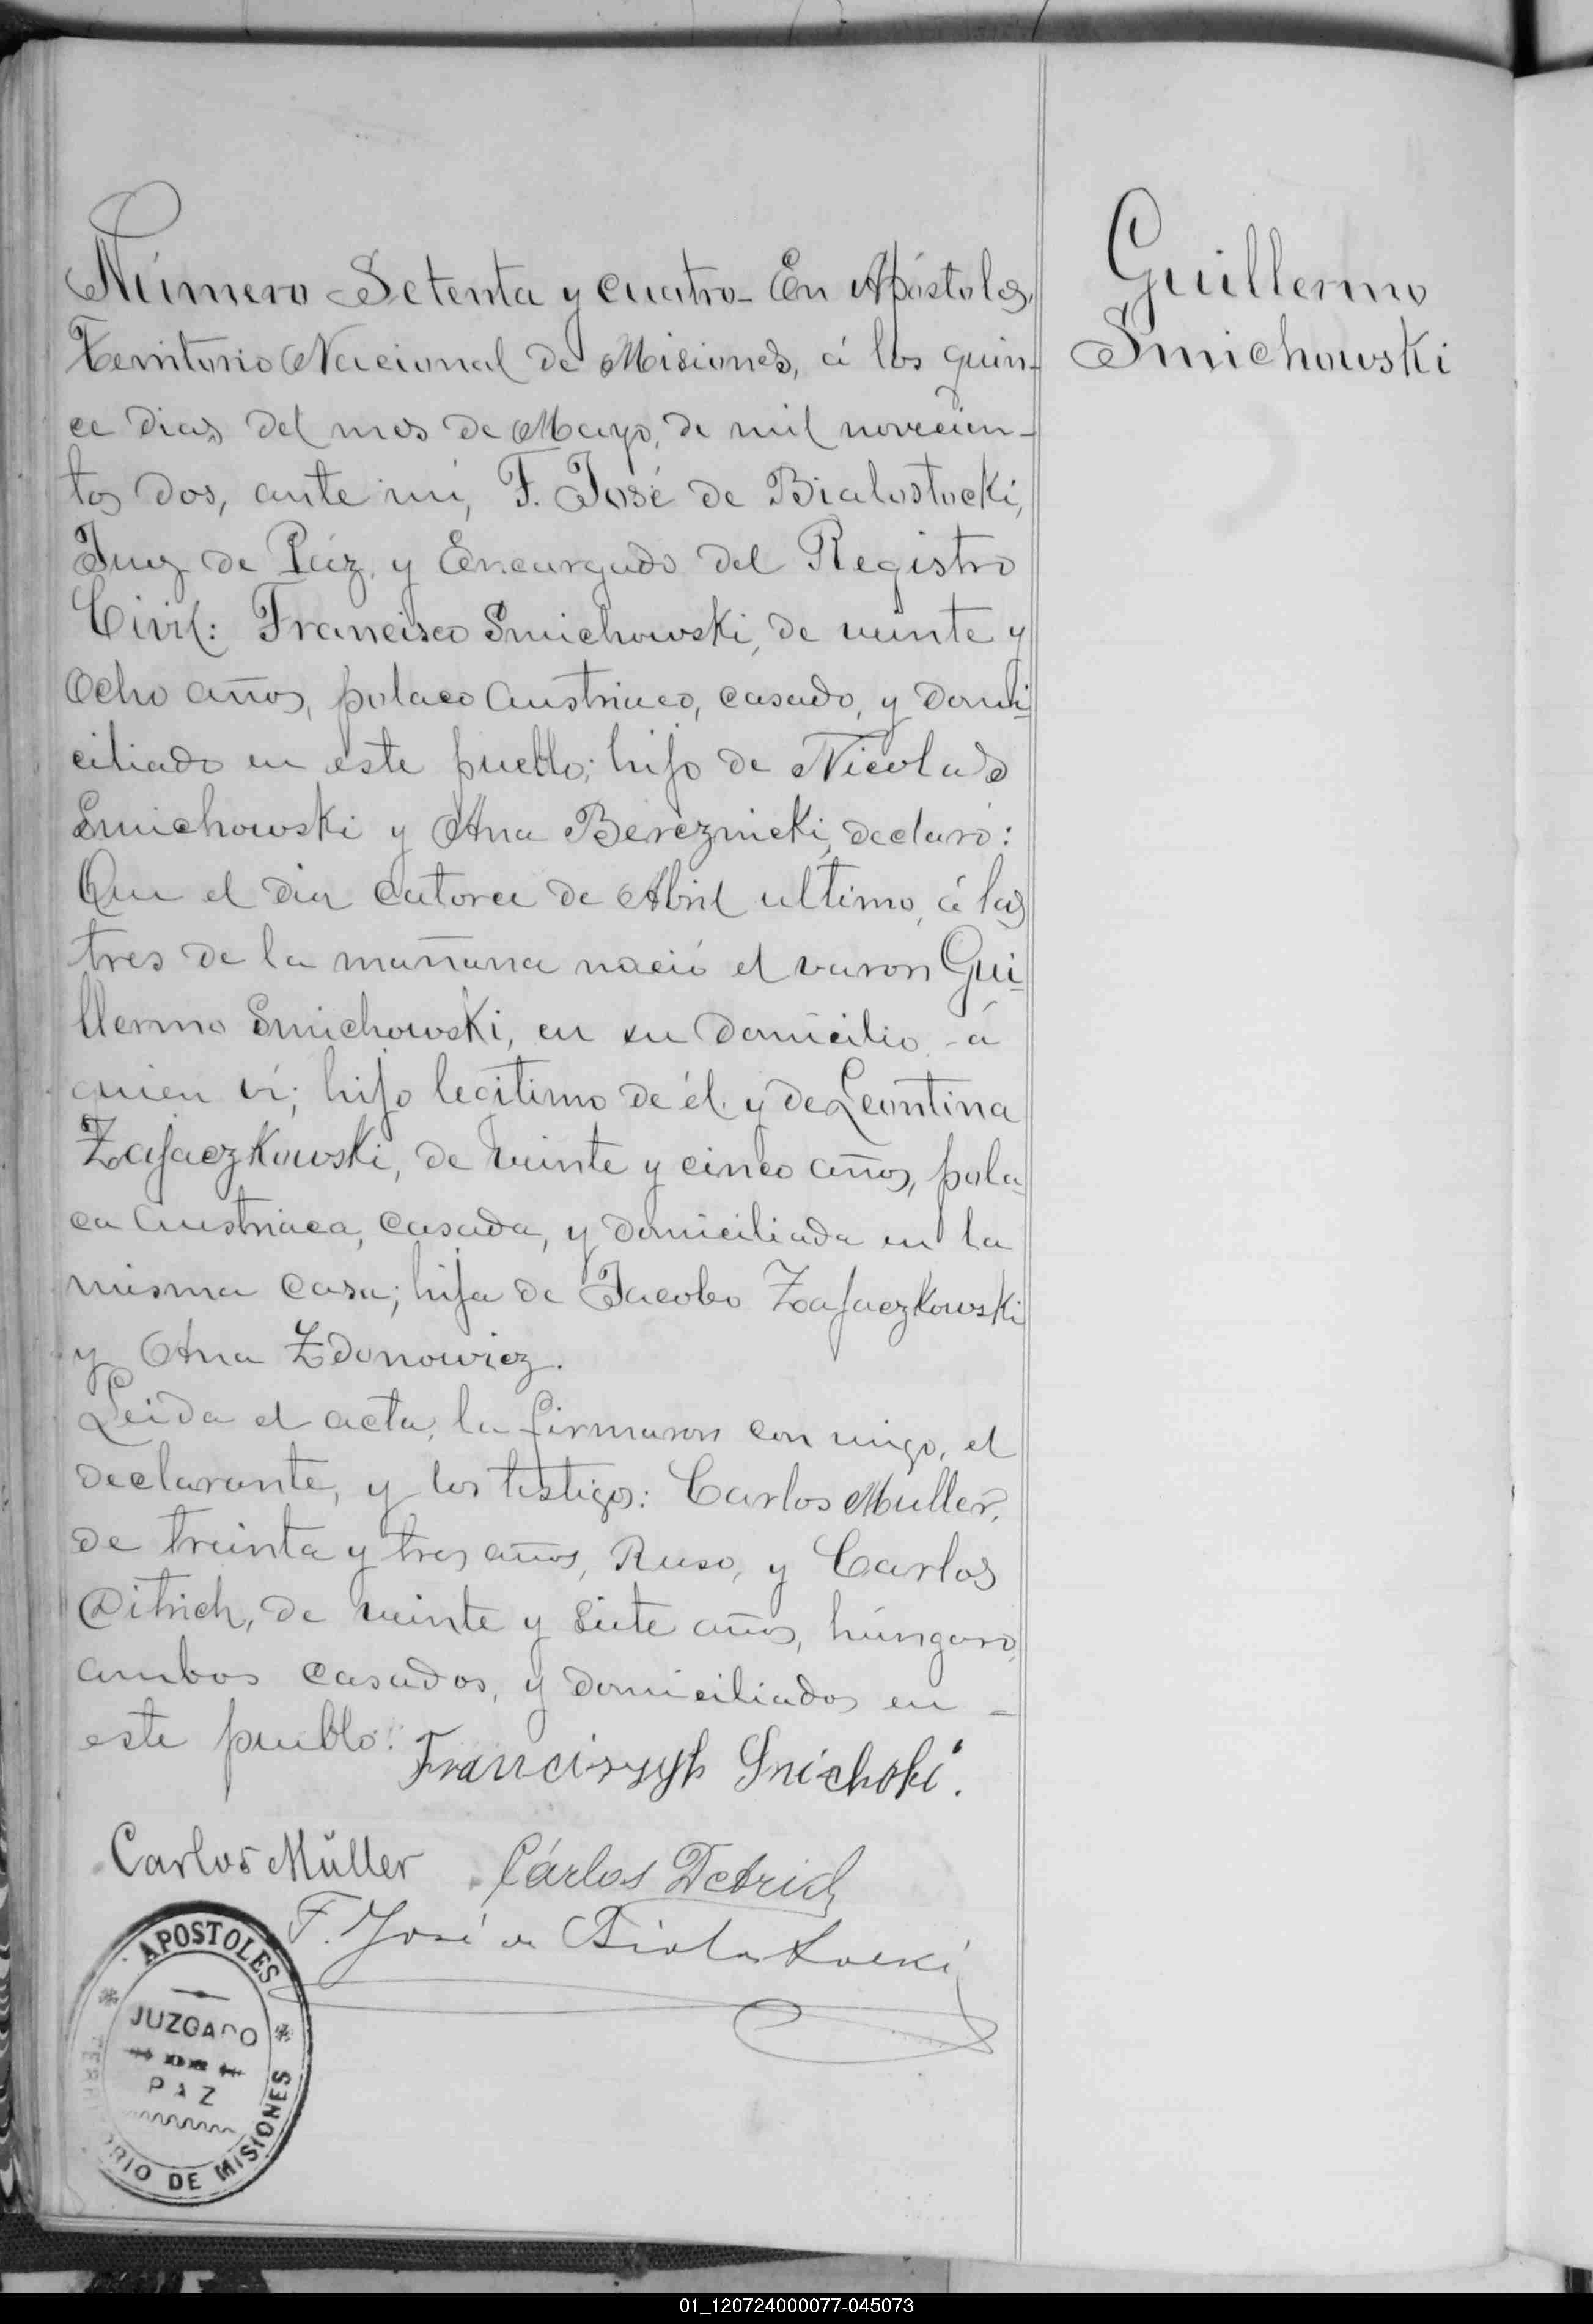 Número Setenta y cuatro - En Apóstoles,
Territorio Nacional de Misiones, á los quin-
ce dias del mes de Mayo, de mil novecien-
tos dos, ante mí, F. José de Bialostocki,
Juez de Páz, y Encargado del Registro
Civil: Francisco Smichowski, de veinte y
ocho años, polaco austriaco, casado, y domi-
ciliado en este pueblo; hijo de Nicolas
Smichowski y Ana Bereznicki, declaró:
Que el dia catorce de Abril ultimo, á las
tres de la mañana nació el varon Gui-
llermo Smichowski, en su domicilio, - á
quien ví; hijo legítimo de él y de Leontina
Zajaczkowski, de veinte y cinco años, pola-
ca austriaca, casada, y domiciliada en la
misma casa; hija de Jacobo Zajaczkowski
y Ana Zdonowicz.
Leida el acta, la firmaron con migo, el
declarante, y los testigos: Carlos Muller,
de treinta y tres años, Ruso, y Carlos
Ditrich, de veinte y siete años, húngaro,
ambos casados, y domiciliados en -
este pueblo.
Franciszyk Snichoki.
Carlos Müller Cárlos Detrich
F. José de Bialostocki
Guillermo
Smichowski
APOSTOLES
JUZGADO
DE
PAZ
TERRITORIO DE MISIONES
01_120724000077-045073